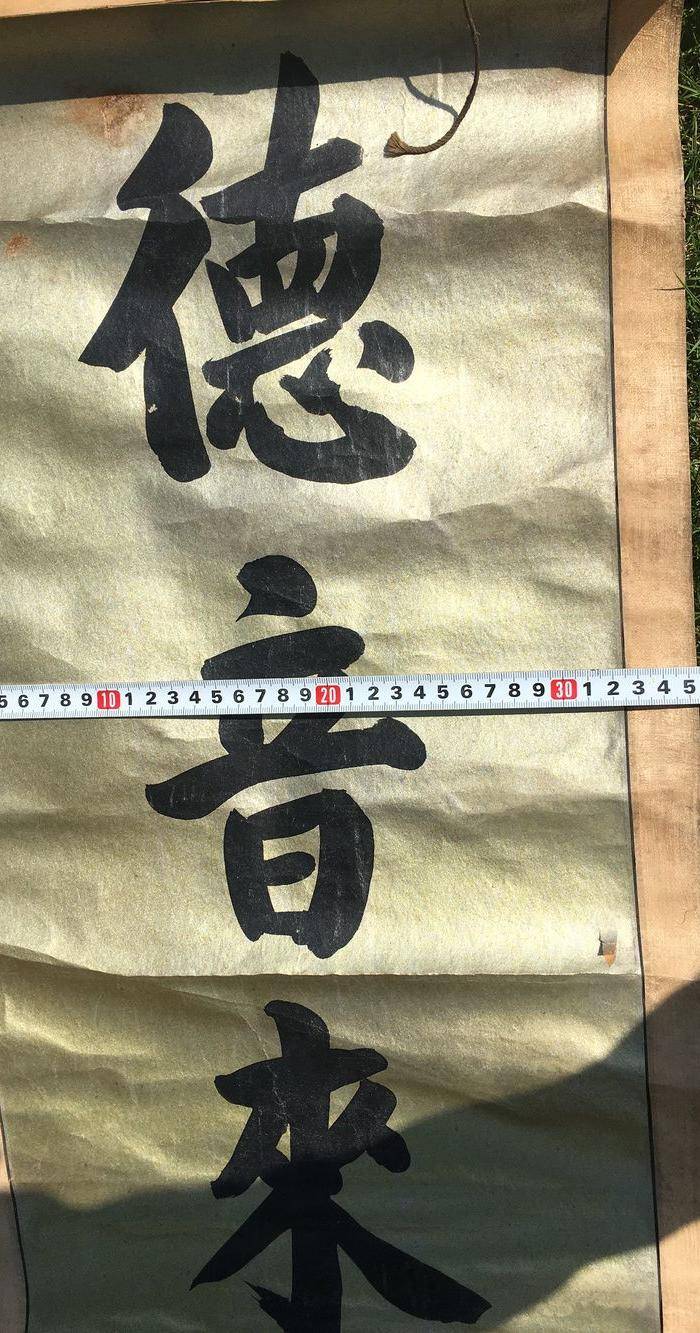 德音來
5 6 7 8 9 10 1 2 3 4 5 6 7 8 9 20 1 2 3 4 5 6 7 8 9 30 1 2 3 4 5